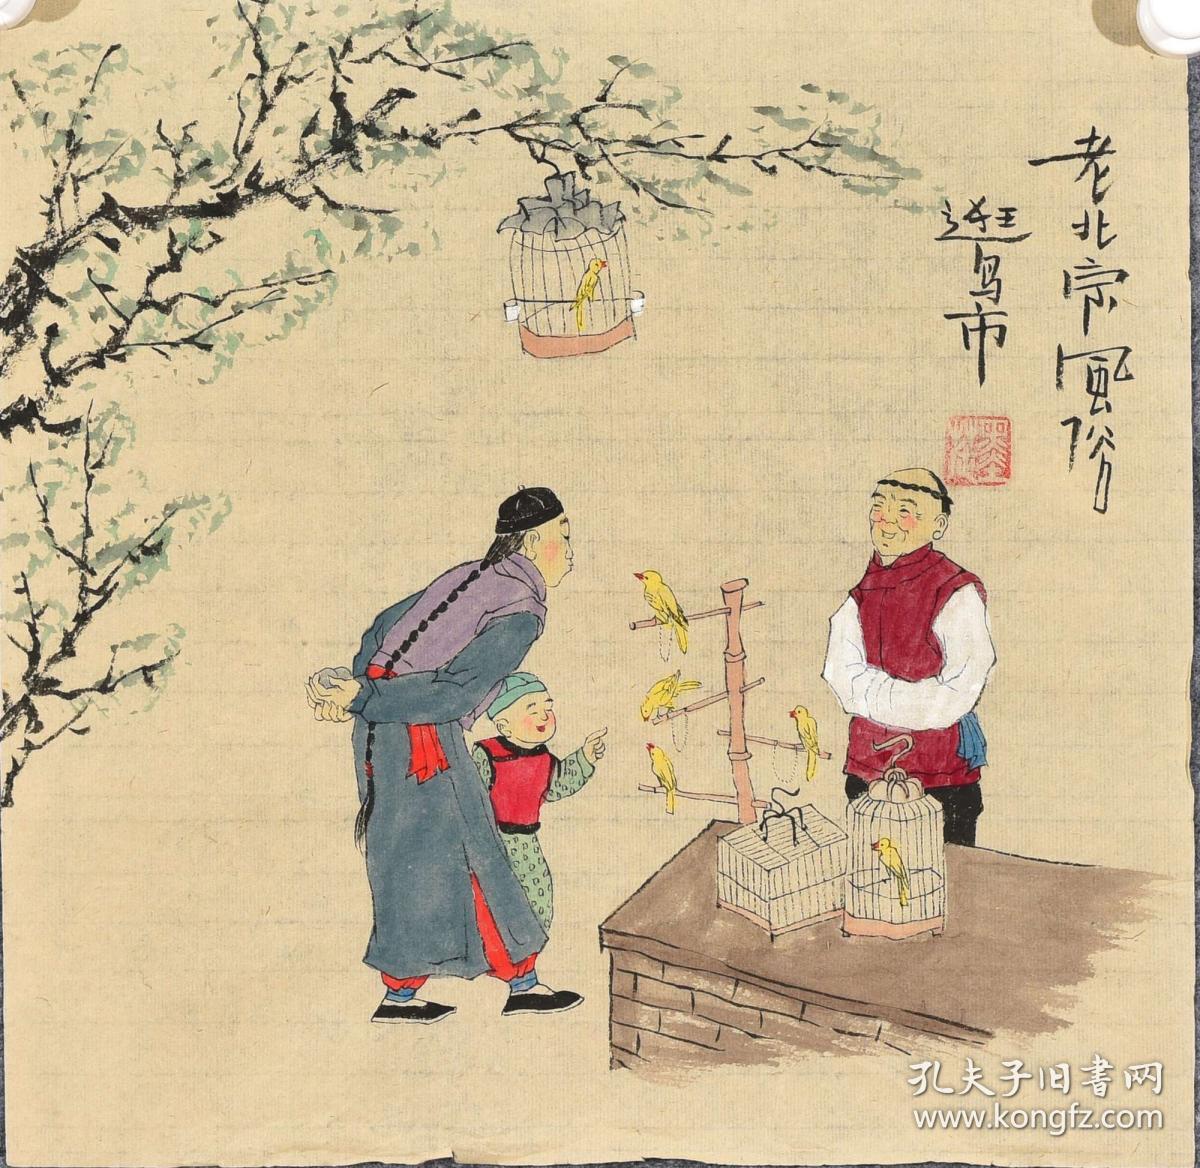 老北京風俗
逛鸟市
孔夫子旧書网
www.kongfz.com